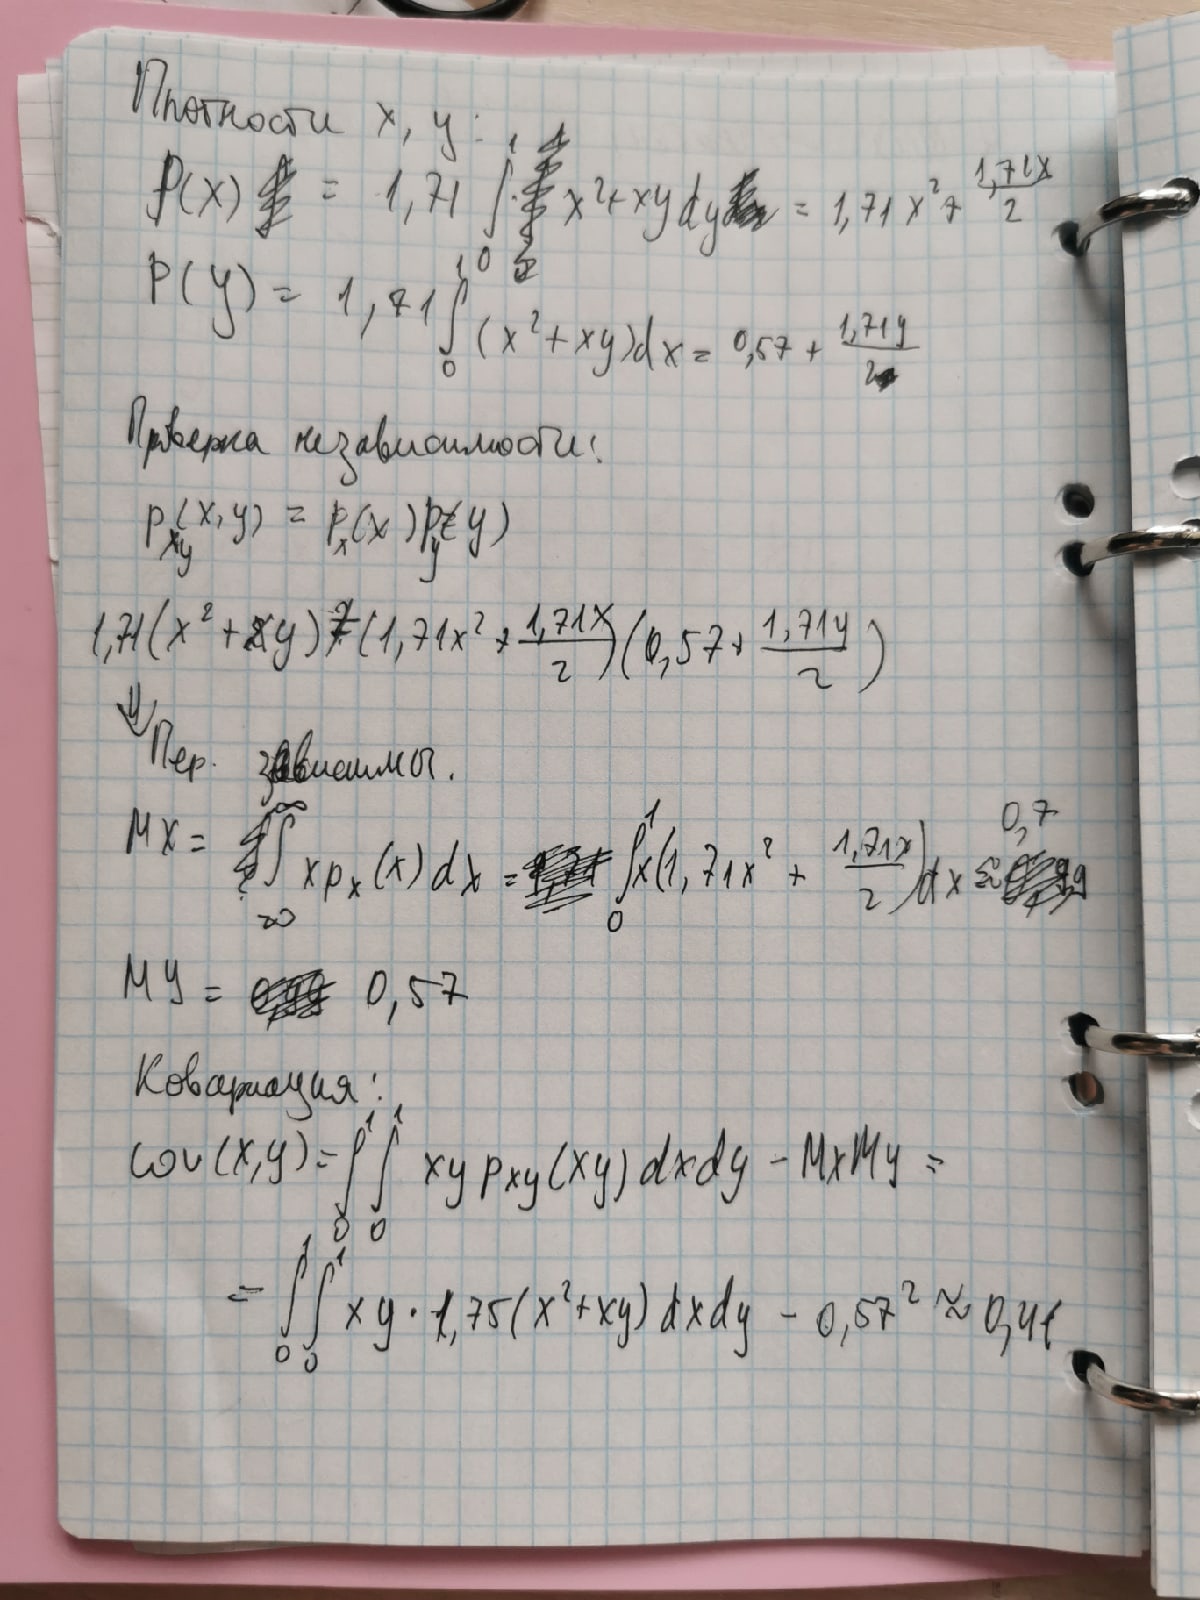 Плотности x, y:
P(x) = 1,71 ∫₀¹ x²+xy dy = 1,71x² + 1,71x/2
P(y) = 1,71 ∫₀¹ (x²+xy)dx = 0,57 + 1,71y/2
Проверка независимости:
p_xy(x,y) = p_x(x) p_y(y)
1,71(x²+xy) ≠ (1,71x² + 1,71x/2)(0,57 + 1,71y/2)
⇓
Пер. зависимы.
MX = ∫ x p_x(x) dx = ∫₀¹ x(1,71x² + 1,71x/2)dx ≈ 0,7
MY = 0,57
Ковариация:
cov(x,y) = ∫₀¹∫₀¹ xy p_xy(xy) dxdy − MxMy =
= ∫₀¹∫₀¹ xy · 1,75(x²+xy) dxdy − 0,57² ≈